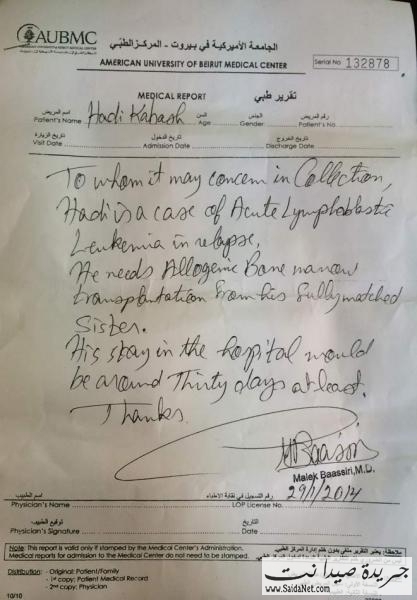 AUBMC
AMERICAN UNIVERSITY OF BEIRUT MEDICAL CENTER
الجامعة الأميركية في بيروت - المركز الطبي
AMERICAN UNIVERSITY OF BEIRUT MEDICAL CENTER
Serial No 132878
MEDICAL REPORT تقرير طبي
اسم المريض السن الجنس رقم المريض
Patient's Name Hadi Kabash Age Gender Patient's No.
تاريخ الزيارة تاريخ الدخول تاريخ الخروج
Visit Date Admission Date Discharge Date
To whom it may concern in Collection,
Hadi is a case of Acute Lymphoblastic
Leukemia in relapse,
He needs Allogenic Bone marrow
transplantation from his fully matched
Sister.
His stay in the hospital would
be around Thirty days at least.
Thanks
Malek Baassiri, M.D.
29/1/2014
اسم الطبيب رقم التسجيل في نقابة الاطباء
Physician's Name LOP License No.
توقيع الطبيب التاريخ
Physician's Signature Date
Note: This report is valid only if stamped by the Medical Center's Administration.
Medical reports for admission to the Medical Center do not need to be stamped.
ملاحظة: يعتبر التقرير ملغى بدون ختم إدارة المركز الطبي.
Distribution: - Original: Patient/Family
- 1st copy: Patient Medical Record
- 2nd copy: Physician
10/10
جريدة صيدا نت
www.SaidaNet.com